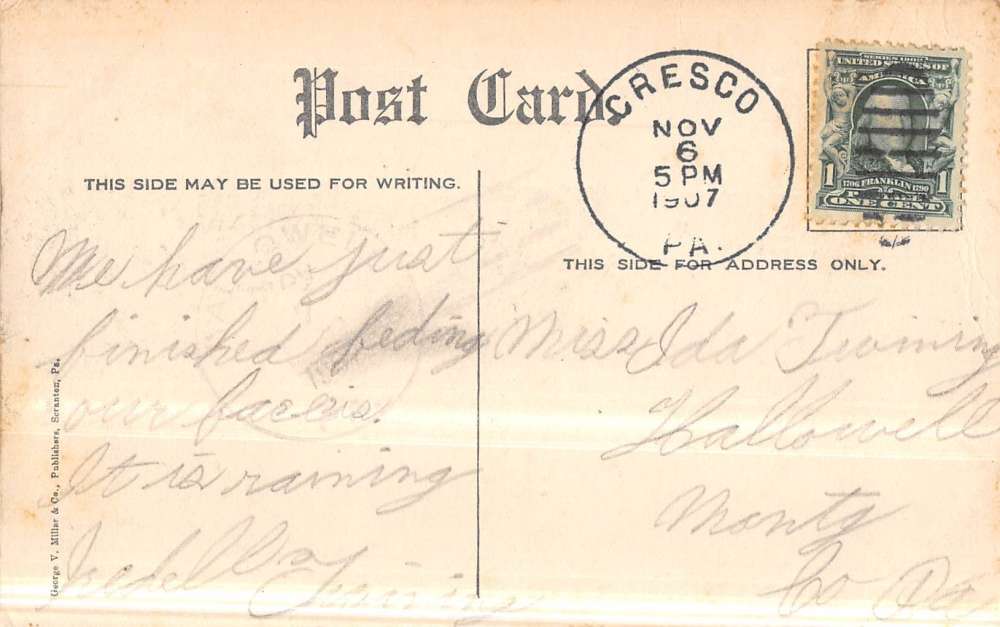 Post Card
CRESCO
NOV
6
5 PM
1907
PA.
SERIES 1902
UNITED STATES OF
AMERICA
1 1706 FRANKLIN 1790 1
ONE CENT
THIS SIDE MAY BE USED FOR WRITING.
THIS SIDE FOR ADDRESS ONLY.
We have just
finished feding
our faceis.
It is raining
Twining
Miss Ida Twining
Hallowell
Montg
Co Pa
George V. Millar & Co., Publishers, Scranton, Pa.